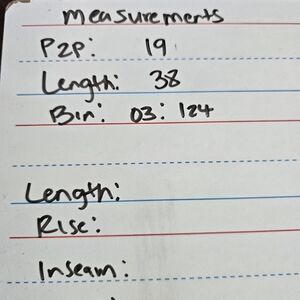 measurements
P2P: 19
Length: 38
Bin: 03: 124
Length:
Rise:
Inseam: